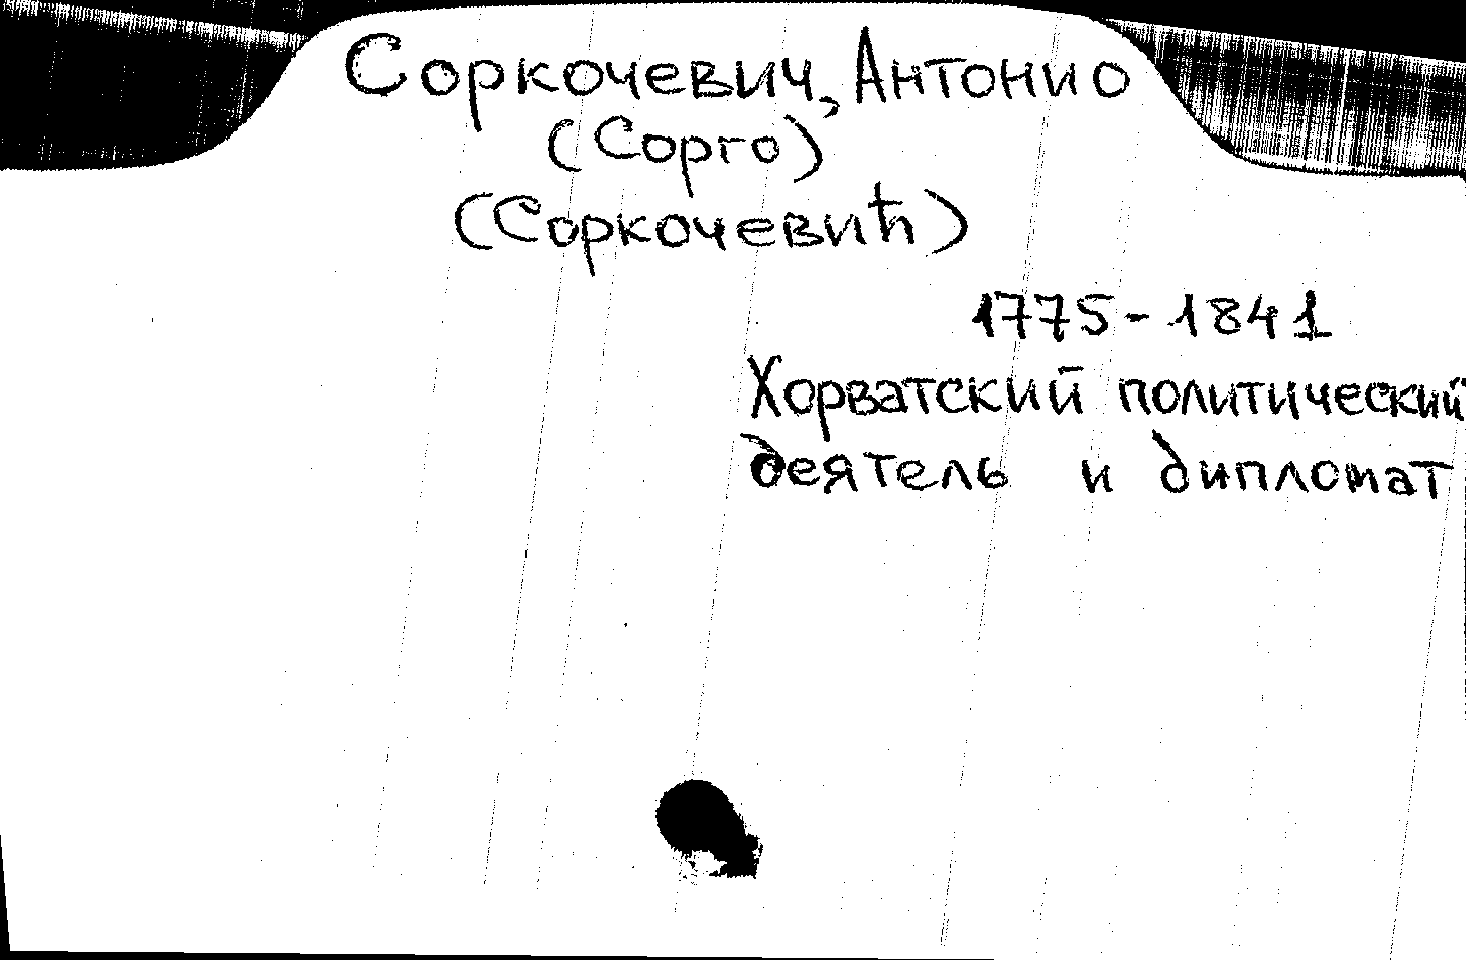 Соркочевич, Антонио
(Сорго)
(Соркочевић)
1775-1841
Хорватский политический
деятель и дипломат